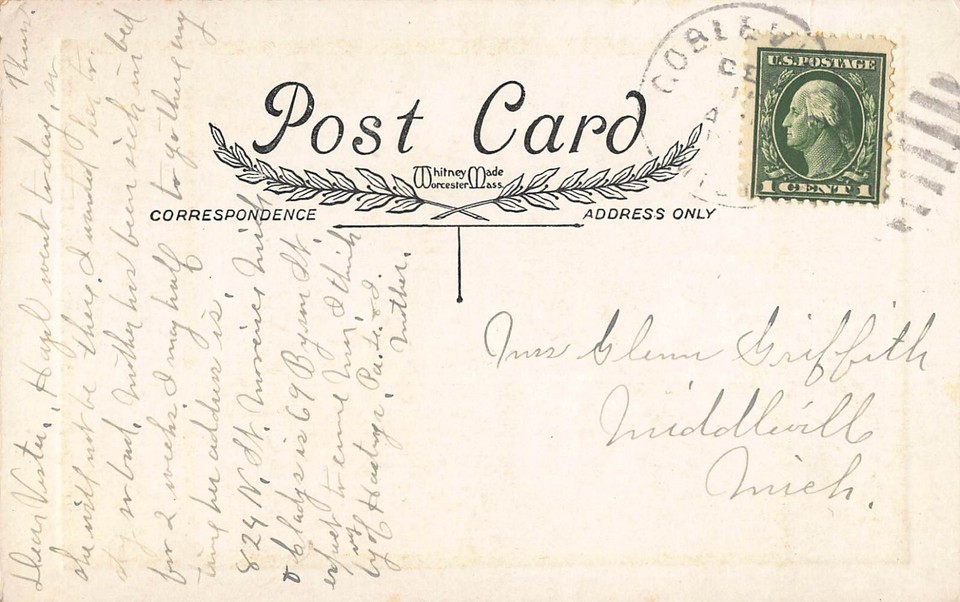 Post Card
Whitney Made
Worcester Mass.
CORRESPONDENCE
ADDRESS ONLY
U.S. POSTAGE
1 CENT 1
COBLEV
DE
Thurs.
Dear Vester, Hazel went today, so
she will not be there, I wanted her to
stay, but Mother has been sick in bed
for 2 weeks. I may half to go thing my
her address is,
824 N. St.
Gladys is 69 Byrn St.
expect to come Mig, I think
by of Hastings.
Mother.
Mrs Glenn Griffith
Middlevill
Mich.